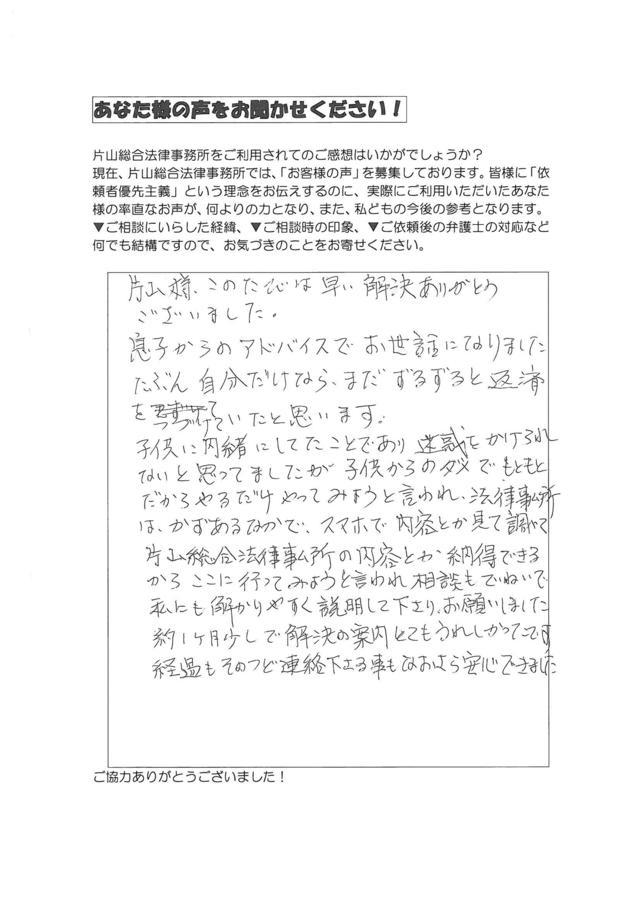 あなた様の声をお聞かせください！
片山総合法律事務所をご利用されてのご感想はいかがでしょうか？
現在、片山総合法律事務所では、「お客様の声」を募集しております。皆様に「依
頼者優先主義」という理念をお伝えするのに、実際にご利用いただいたあなた
様の率直なお声が、何よりの力となり、また、私どもの今後の参考となります。
▼ご相談にいらした経緯、▼ご相談時の印象、▼ご依頼後の弁護士の対応など
何でも結構ですので、お気づきのことをお寄せください。
片山様、このたびは早い解決ありがとう
ございました。
息子からのアドバイスでお世話になりました
たぶん自分だけなら、まだずるずると返済
をつづけていたと思います。
子供に内緒にしてたことであり迷惑をかけられ
ないと思ってましたが子供からのダメでもともと
だからやるだけやってみようと言われ、法律事ム所
は、かずあるなかで、スマホで内容とか見て調べて
片山総合法律事ム所の内容とか納得できる
からここに行ってみようと言われ相談もていねいで
私にも解かりやすく説明して下さり、お願いしました
約1ヶ月少しで解決の案内とてもうれしかったです
経過もそのつど連絡下さる事もなおさら安心できました
ご協力ありがとうございました！